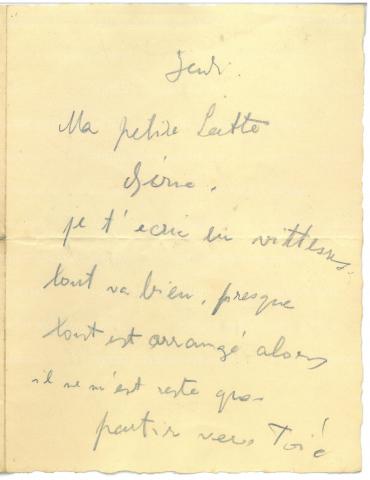 Jeudi.
Ma petite Latte
chérie,
je t'écrie en vittesse
tout va bien, presque
tout est arrangé alors
il ne m'est reste que
partir vers Toi